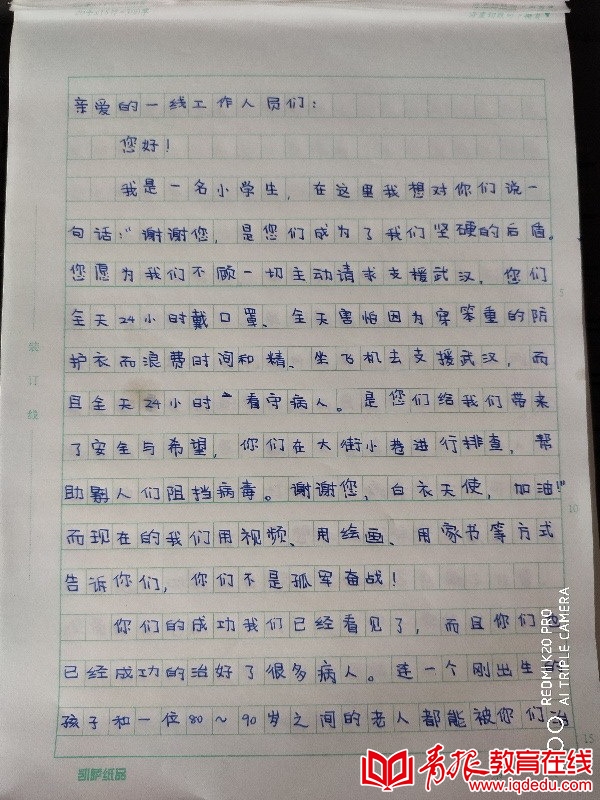 亲爱的一线工作人员们：
您好！
我是一名小学生，在这里我想对你们说一
句话："谢谢您，是您们成为了我们坚硬的后盾。
您愿为我们不顾一切主动请求支援武汉，您们
全天24小时戴口罩、全天害怕因为穿笨重的防
护衣而浪费时间和精、坐飞机去支援武汉，而
且全天24小时看守病人。是您们给我们带来
了安全与希望，你们在大街小巷进行排查，帮
助别人们阻挡病毒。谢谢您，白衣天使，加油！"
而现在的我们用视频、用绘画、用家书等方式
告诉你们，你们不是孤军奋战！
你们的成功我们已经看见了，而且你们
已经成功的治好了很多病人。连一个刚出生
孩子和一位80～90岁之间的老人都能被你们治
装订线
5
10
15
凯萨纸品
REDMI K20 PRO
AI TRIPLE CAMERA
青报教育在线
www.iqdedu.com